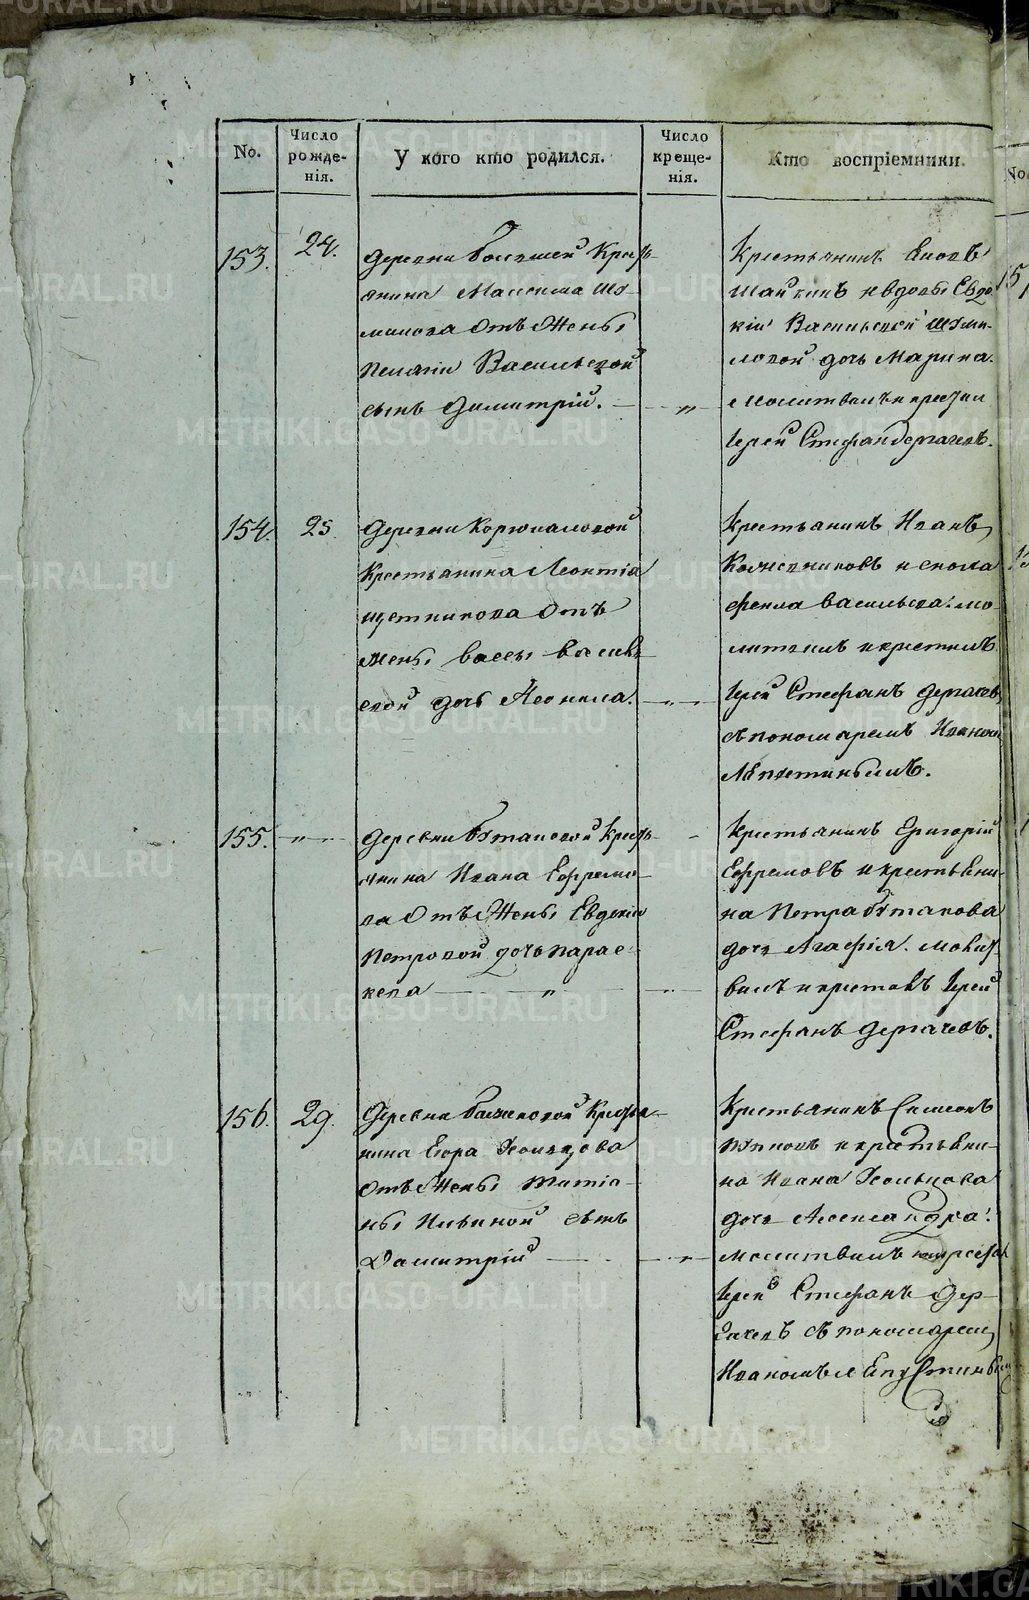 No.
Число рожде-нія.
У кого кто родился.
Число креще-нія.
Кто воспріемники.
No.
153.
24.
деревни Большей Кресть-
янина Максима Шу-
милова отъ Жены
Пелагіи Васильевой
сынъ Димитрій. — „
Крестьянинъ Яковъ
Шайкинъ и вдовы Евдо
кіи Васильевой Шуми-
ловой дочь Марина.
Молитвилъ и крестил
Іерей Стефан Дергачевъ.
154.
25.
деревни
Крестьянина Леонтіа
Щетникова отъ
жены Вассы Василь
евой дочь Леонила. — „ —
Крестьянинъ Иванъ
Кожевниковъ и
Фекла Васильева. мо-
литвилъ и крестилъ
Іерей Стефанъ Дергачевъ
съ пономаремъ Иваномъ
155.
„
деревни Бутаковой Кресть-
янина Ивана Ефремо-
ва отъ Жены Евдокіи
Петровой дочь Парас-
кева — „ —
Крестьянинъ Григорій
Ефремовъ и крестьяни-
на Петра Бутакова
дочь Агафія. молит
вилъ и крестилъ Іерей
Стефанъ Дергачевъ.
156.
29.
деревни Баженовой Крестья-
нина Егора Хомяцова
отъ Жены Татіа-
ны Ильиной сынъ
Димитрій — „
Крестьянинъ Симеонъ
и крестьяни-
на Ивана
дочь Александра.
молитвилъ и крестил
Іерей Стефанъ Дер-
гачевъ съ пономарем
Иваномъ
METRIKI.GASO-URAL.RU